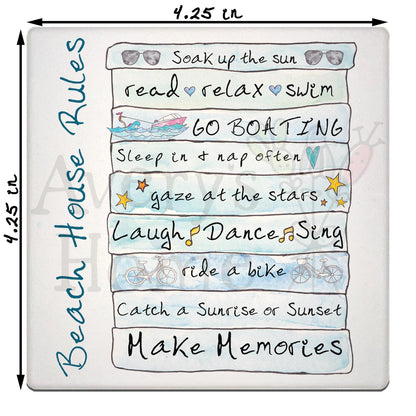 4.25 in
4.25 in
Beach House Rules
Soak up the sun
read relax swim
GO BOATING
Sleep in & nap often
gaze at the stars
Laugh Dance Sing
ride a bike
Catch a Sunrise or Sunset
Make Memories